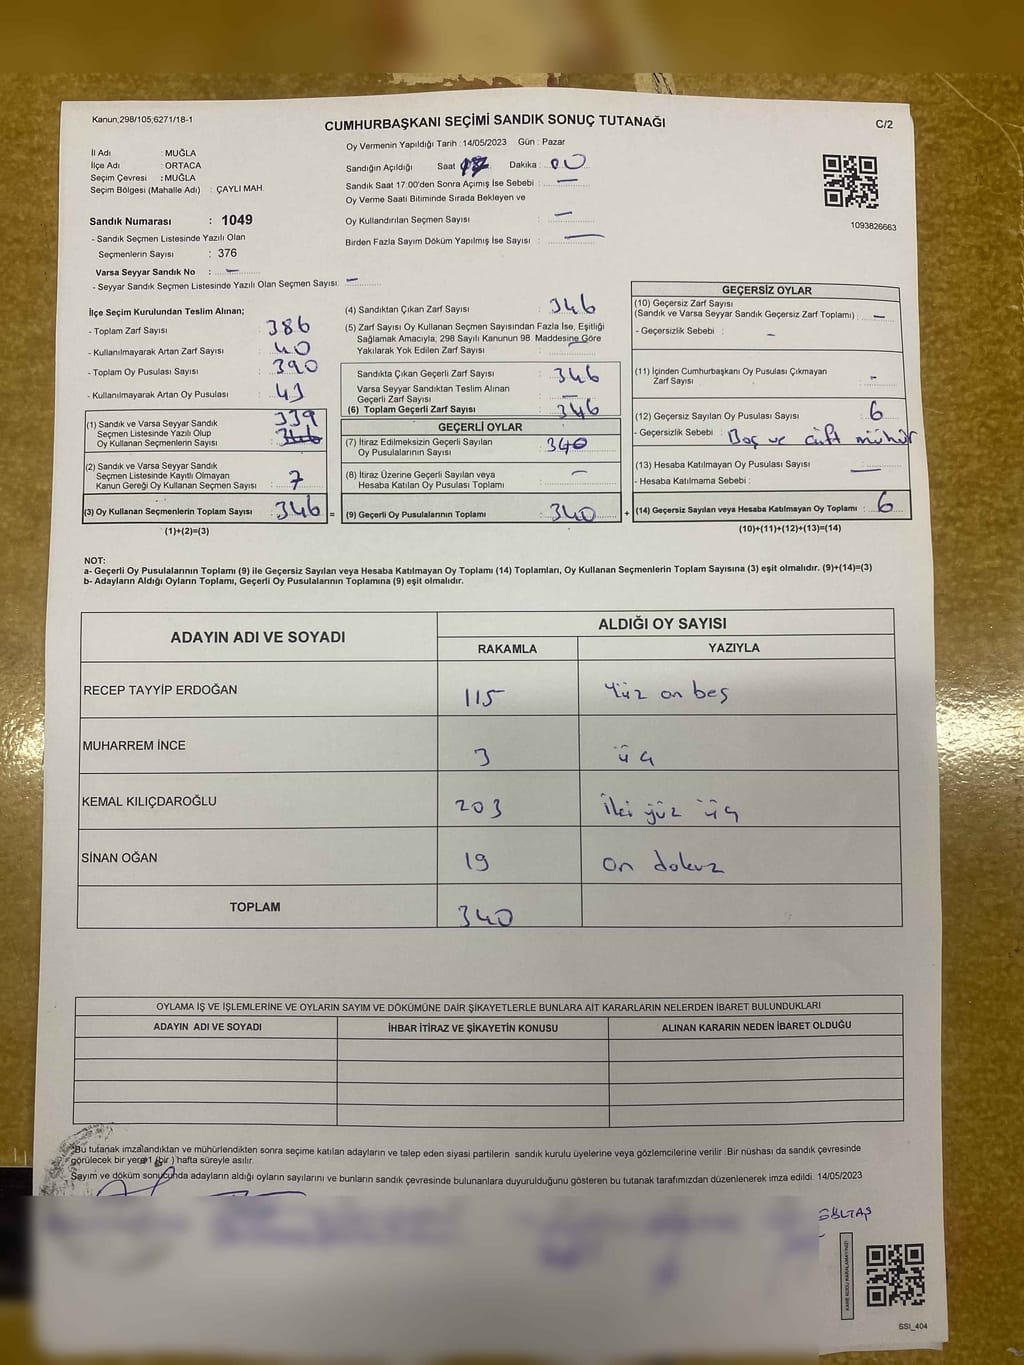 Kanun;298/105;6271/18-1
CUMHURBAŞKANI SEÇİMİ SANDIK SONUÇ TUTANAĞI
C/2
İl Adı : MUĞLA
İlçe Adı : ORTACA
Seçim Çevresi : MUĞLA
Seçim Bölgesi (Mahalle Adı) : ÇAYLI MAH.
Sandık Numarası : 1049
- Sandık Seçmen Listesinde Yazılı Olan
Seçmenlerin Sayısı : 376
Varsa Seyyar Sandık No : —
- Seyyar Sandık Seçmen Listesinde Yazılı Olan Seçmen Sayısı: —
Oy Vermenin Yapıldığı Tarih : 14/05/2023 Gün : Pazar
Sandığın Açıldığı Saat 17 Dakika : 00
Sandık Saat 17:00'den Sonra Açımış İse Sebebi : —
Oy Verme Saati Bitiminde Sırada Bekleyen ve
Oy Kullandırılan Seçmen Sayısı : —
Birden Fazla Sayım Döküm Yapılmış İse Sayısı : —
1093826663
İlçe Seçim Kurulundan Teslim Alınan;
- Toplam Zarf Sayısı : 386
- Kullanılmayarak Artan Zarf Sayısı : 40
- Toplam Oy Pusulası Sayısı : 390
- Kullanılmayarak Artan Oy Pusulası : 43
(1) Sandık ve Varsa Seyyar Sandık
Seçmen Listesinde Yazılı Olup
Oy Kullanan Seçmenlerin Sayısı : 339
346
(2) Sandık ve Varsa Seyyar Sandık
Seçmen Listesinde Kayıtlı Olmayan
Kanun Gereği Oy Kullanan Seçmen Sayısı : 7
(3) Oy Kullanan Seçmenlerin Toplam Sayısı : 346 =
(1)+(2)=(3)
(4) Sandıktan Çıkan Zarf Sayısı : 346
(5) Zarf Sayısı Oy Kullanan Seçmen Sayısından Fazla İse, Eşitliği
Sağlamak Amacıyla; 298 Sayılı Kanunun 98. Maddesine Göre
Yakılarak Yok Edilen Zarf Sayısı : —
Sandıkta Çıkan Geçerli Zarf Sayısı : 346
Varsa Seyyar Sandıktan Teslim Alınan
Geçerli Zarf Sayısı : —
(6) Toplam Geçerli Zarf Sayısı : 346
GEÇERLİ OYLAR
(7) İtiraz Edilmeksizin Geçerli Sayılan
Oy Pusulalarının Sayısı : 340
(8) İtiraz Üzerine Geçerli Sayılan veya
Hesaba Katılan Oy Pusulası Toplamı : —
(9) Geçerli Oy Pusulalarının Toplamı : 340 +
GEÇERSİZ OYLAR
(10) Geçersiz Zarf Sayısı
(Sandık ve Varsa Seyyar Sandık Geçersiz Zarf Toplamı) : —
- Geçersizlik Sebebi : —
(11) İçinden Cumhurbaşkanı Oy Pusulası Çıkmayan
Zarf Sayısı : -
(12) Geçersiz Sayılan Oy Pusulası Sayısı : 6
- Geçersizlik Sebebi : Boş ve çift mühür
(13) Hesaba Katılmayan Oy Pusulası Sayısı : —
- Hesaba Katılmama Sebebi :
(14) Geçersiz Sayılan veya Hesaba Katılmayan Oy Toplamı : 6
(10)+(11)+(12)+(13)=(14)
NOT:
a- Geçerli Oy Pusulalarının Toplamı (9) ile Geçersiz Sayılan veya Hesaba Katılmayan Oy Toplamı (14) Toplamları, Oy Kullanan Seçmenlerin Toplam Sayısına (3) eşit olmalıdır. (9)+(14)=(3)
b- Adayların Aldığı Oyların Toplamı, Geçerli Oy Pusulalarının Toplamına (9) eşit olmalıdır.
ADAYIN ADI VE SOYADI
ALDIĞI OY SAYISI
RAKAMLA YAZIYLA
RECEP TAYYİP ERDOĞAN 115 Yüz on beş
MUHARREM İNCE 3 üç
KEMAL KILIÇDAROĞLU 203 iki yüz üç
SİNAN OĞAN 19 on dokuz
TOPLAM 340
OYLAMA İŞ VE İŞLEMLERİNE VE OYLARIN SAYIM VE DÖKÜMÜNE DAİR ŞİKAYETLERLE BUNLARA AİT KARARLARIN NELERDEN İBARET BULUNDUKLARI
ADAYIN ADI VE SOYADI İHBAR İTİRAZ VE ŞİKAYETİN KONUSU ALINAN KARARIN NEDEN İBARET OLDUĞU
Bu tutanak imzalandıktan ve mühürlendikten sonra seçime katılan adayların ve talep eden siyasi partilerin sandık kurulu üyelerine veya gözlemcilerine verilir. Bir nüshası da sandık çevresinde
görülecek bir yere 1 (bir ) hafta süreyle asılır.
Sayım ve döküm sonucunda adayların aldığı oyların sayılarını ve bunların sandık çevresinde bulunanlara duyurulduğunu gösteren bu tutanak tarafımızdan düzenlenerek imza edildi. 14/05/2023
KARE KODU KARALAMAYINIZ!
SSI_404